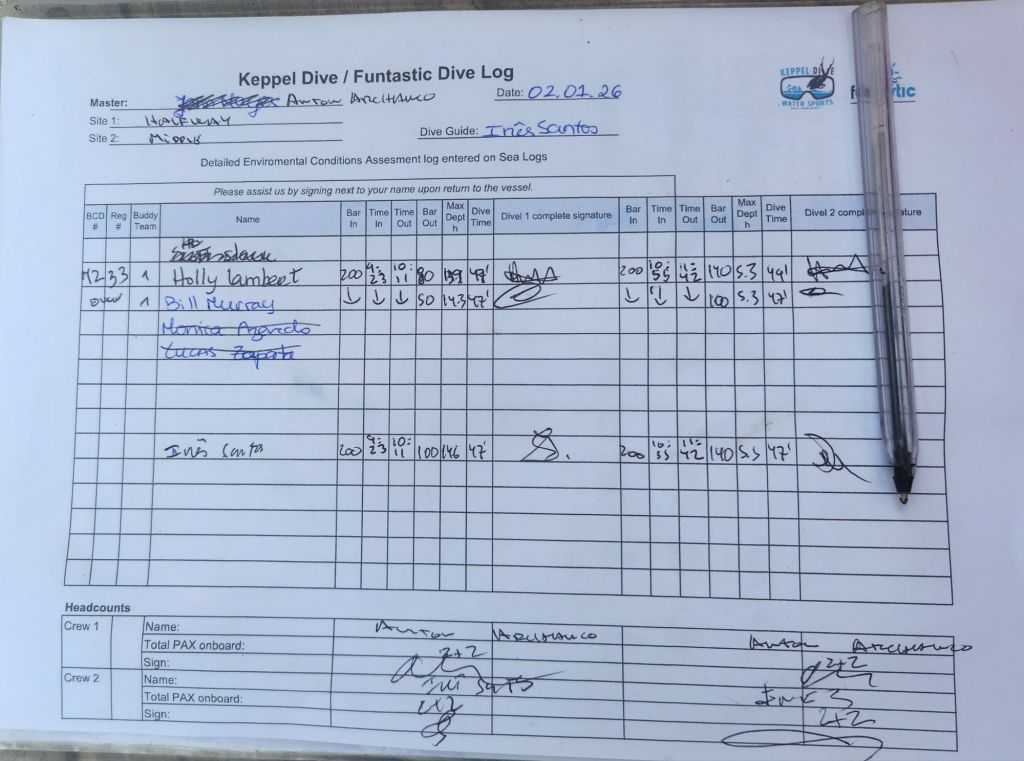 Keppel Dive / Funtastic Dive Log
KEPPEL DIVE
WATER SPORTS
Master: ANTON ARCHANCO
Date: 02.01.26
Site 1: HALFWAY
Site 2: MIDDLE
Dive Guide: Inês Santos
Detailed Enviromental Conditions Assesment log entered on Sea Logs
Please assist us by signing next to your name upon return to the vessel.
BCD # Reg # Buddy Team Name Bar In Time In Time Out Bar Out Max Depth Dive Time Divel 1 complete signature Bar In Time In Time Out Bar Out Max Depth Dive Time Divel 2 compl ature
33 1 Holly Lambert 200 9:23 10:11 80 139 49' 200 10:55 11:42 140 5.3 49'
own 1 Bill Murray ↓ ↓ ↓ 50 14.3 47' ↓ ↓ ↓ 100 5.3 47'
Monica Azevedo
Lucas Zapata
Inês Santos 200 9:23 10:11 100 14.6 47' 200 10:55 11:42 140 5.3 47'
Headcounts
Crew 1 Name: ANTON ARCHANCO ANTON ARCHANCO
Total PAX onboard: 2+2 2+2
Sign:
Crew 2 Name: Inês Santos Inês S
Total PAX onboard: 2+2 2+2
Sign: